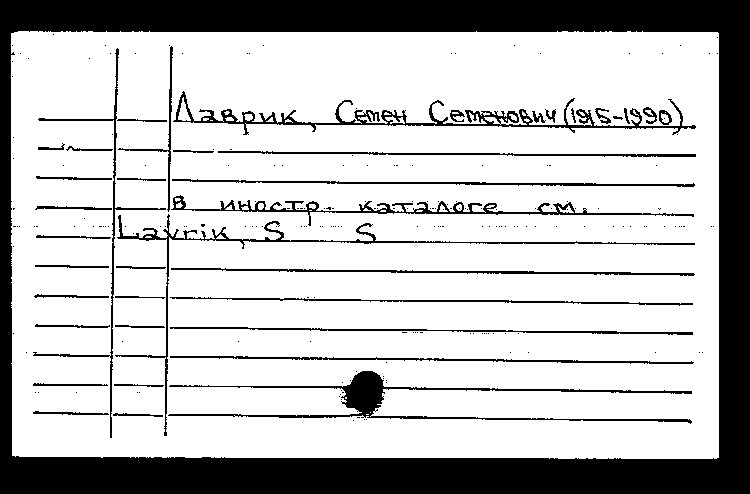 Лаврик, Семен Семенович (1915-1990)
в иностр. каталоге см.
Lavrik, S S